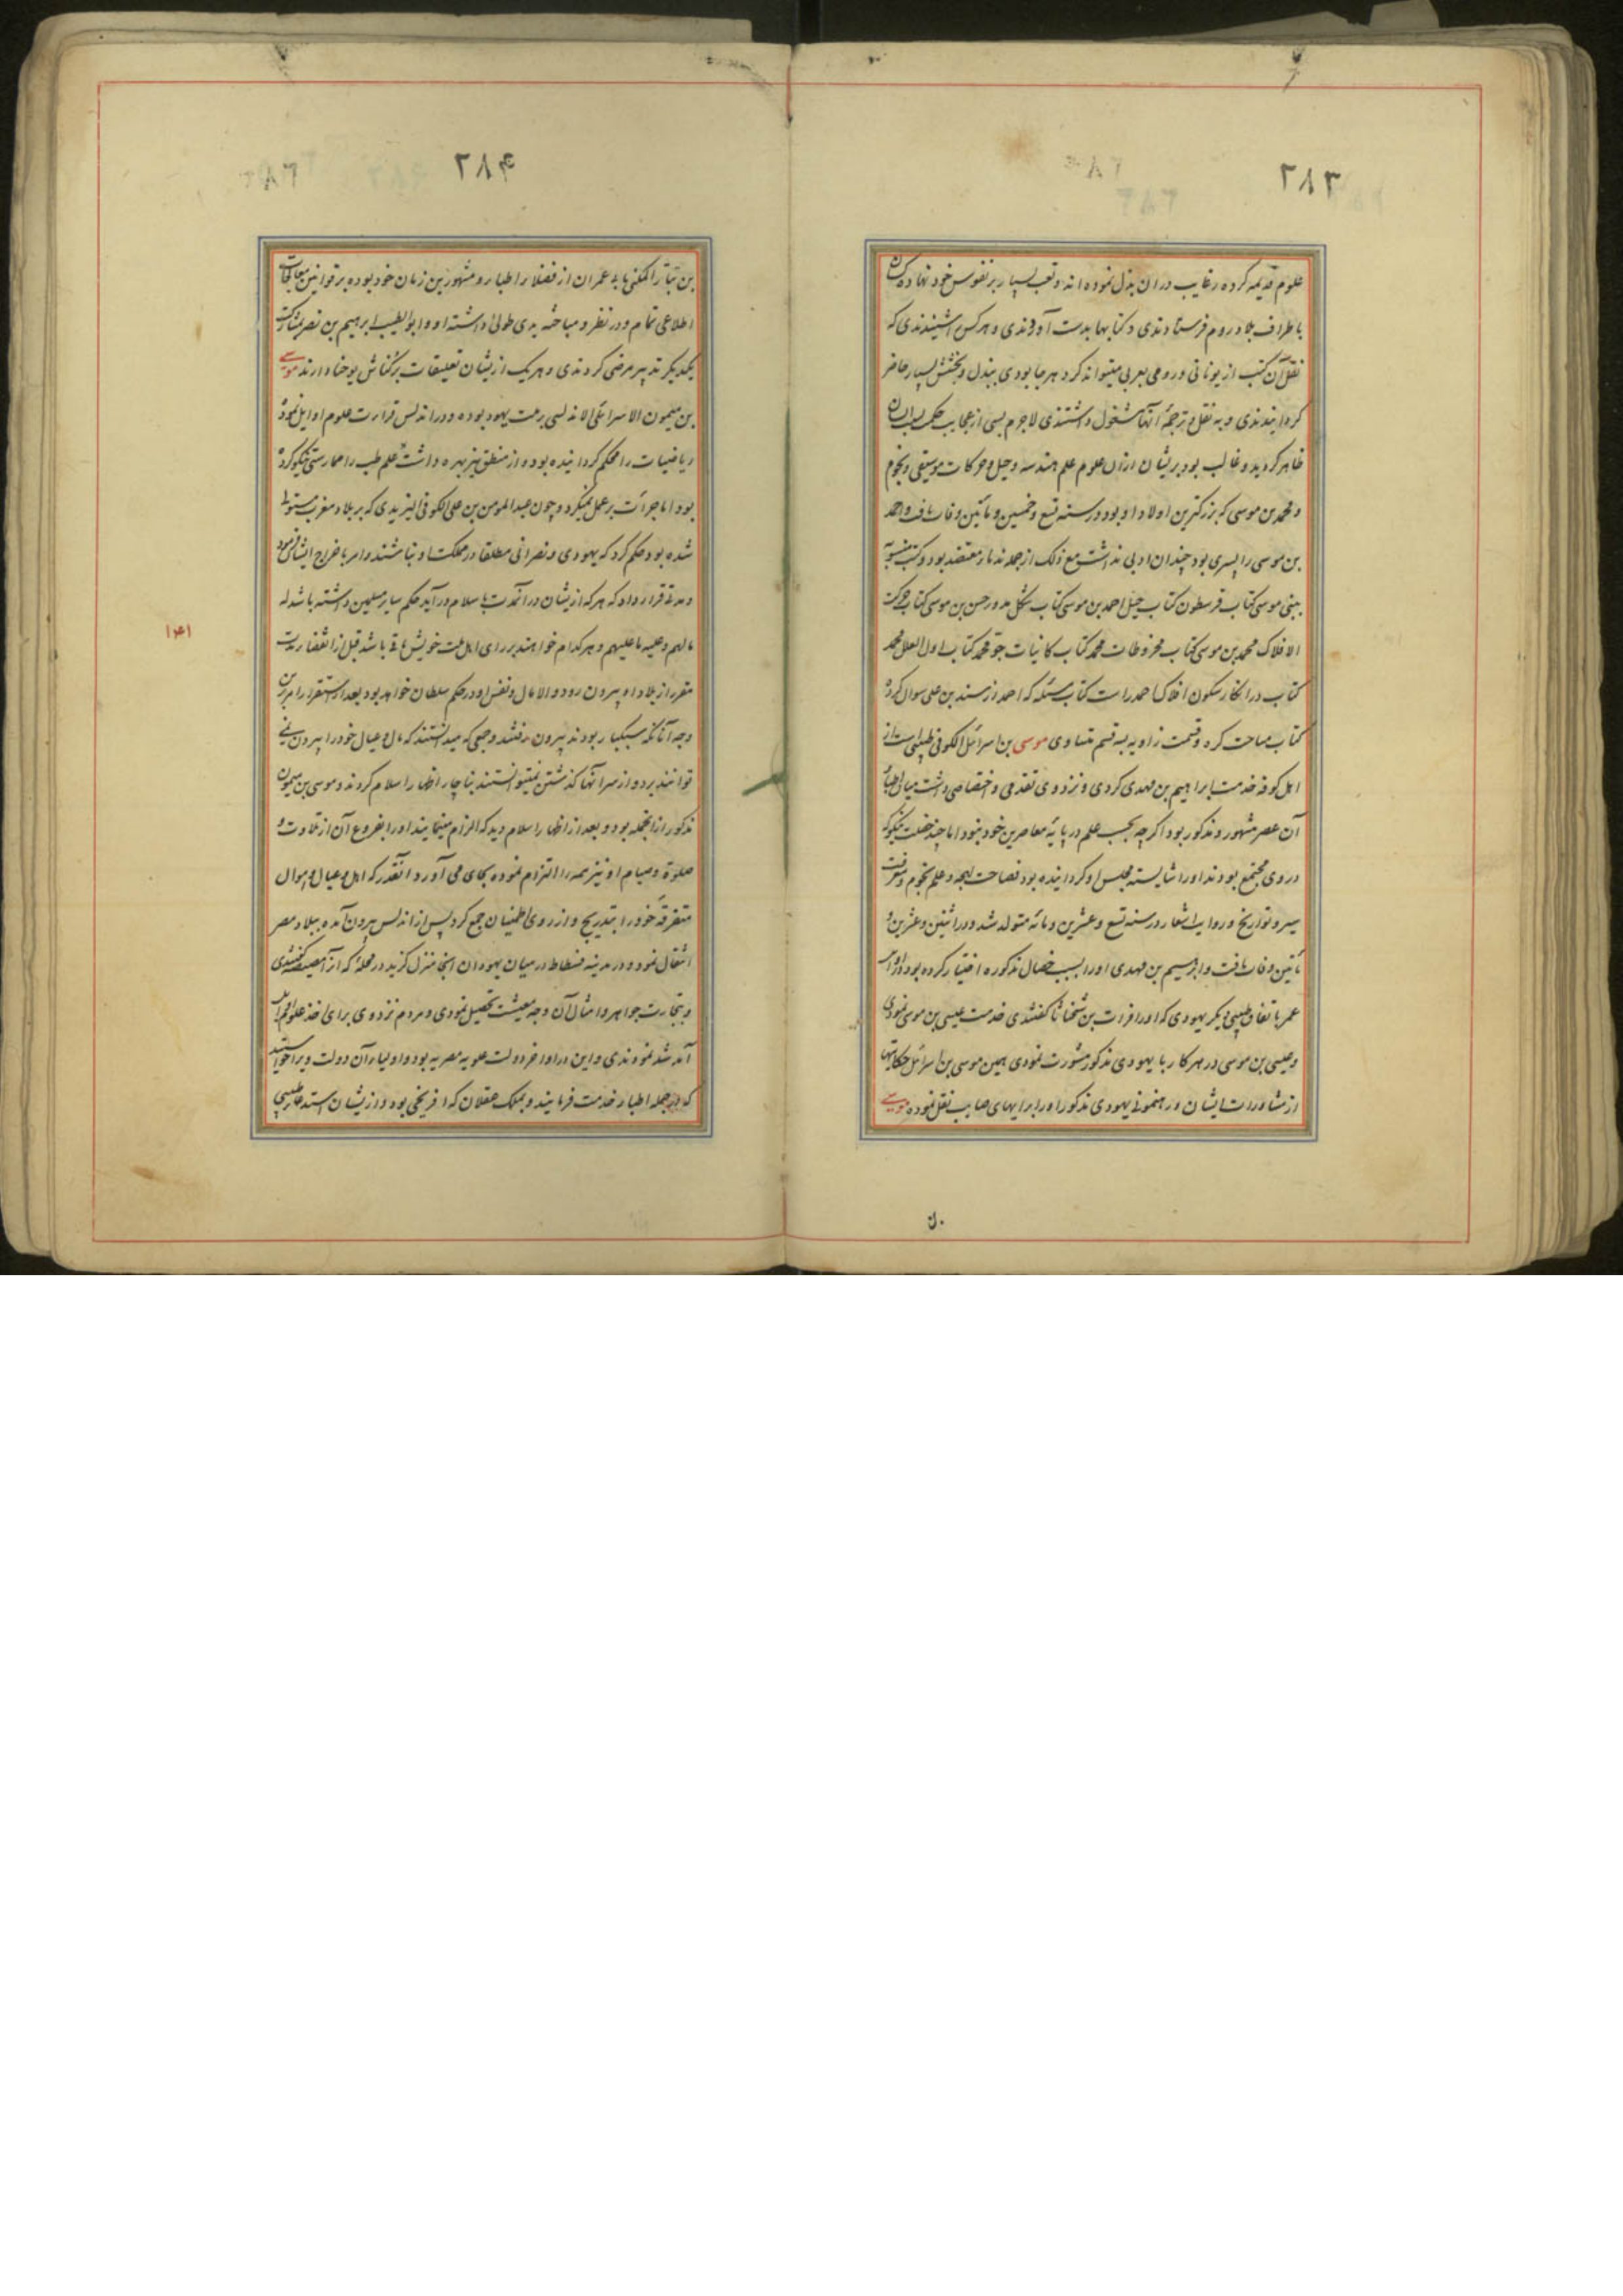 ۲۸۳
علوم قدیمه کرده رغایب در آن بذل نموده اند و تعب بسیار بر نفوس خود نهاده کسان
باطراف بلاد روم فرستادندی و کتابها بدست آوردندی و هر کس را شنیدندی که
نقل آن کتب از یونانی و رومی بعربی میتواند کرد هر جا بودی ببذل و بخشش بسیار حاضر
گردانیدندی و به نقل و ترجمهٔ آنها مشغول داشتندی لاجرم بسی از عجایب حکم بسبب ایشان
ظاهر گردید و غالب بود بر یشان از آن علوم علم هندسه و حیل و حرکات و موسیقی و نجوم
و محمد بن موسی که بزرگترین اولاد او بود در سنه تسع و خمسین و مأتین وفات یافت و احمد
بن موسی را پسری بود چندان ادبی نداشت مع ذلک از جمله ندماء معتضد بود و کتب منسوبه
ببنی موسی کتاب قرسطون کتاب حیل احمد بن موسی کتاب شکل مدور حسن بن موسی کتاب حرکت
الافلاک محمد بن موسی کتاب مخروطات محمد کتاب کتاب اول العلل محمد
کتاب در انکار سکون افلاک احمد راست کتاب مسئله که احمد از سند بن علی سوال کرده
کتاب مساحت کره و قسمت زاویه بسه قسم متساوی موسی بن اسرائیل الکوفی طبیبی است از
اهل کوفه خدمت ابراهیم بن مهدی کردی و نزد وی تقدمی و اختصاصی داشت میان اطباء
آن عصر مشهور و مذکور بود اگر چه بحسب علم در پایهٔ معاصرین خود نبود اما چند خصلت نیکو که
در وی مجتمع بودند او را شایسته مجلس او گردانیده بود فصاحت لهجه و علم نجوم و معرفت
سیر و تواریخ و روایت اشعار در سنه تسع و عشرین و مائه متولد شد و در اثنین و عشرین و
مأتین وفات یافت و ابراهیم بن مهدی او را بسبب خصال مذکوره اختیار کرده بود و در اواسط
عمر باتفاق طبیبی دیگر یهودی که او را فرات بن شحناثا گفتندی خدمت عیسی بن موسی نمودی
و عیسی بن موسی در هر کار با یهودی مذکور مشورت نمودی همین موسی بن اسرائیل حکایتها
از مشاورات ایشان و رهنمونی یهودی مذکور او را برایهای صایب نقل نموده موسی
۲۸۴
بن المکنی بابی عمران از فضلاء اطباء و مشهورین زمان خود بوده بر قوانین معالجات
اطلاعی تمام و در نظر و مباحثه یدی طولی داشته او و ابوالطیب ابرهیم بن نصر بمشارکت
یکدیگر تدبیر مرضی کردندی و هر یک از یشان تعلیقات بر کناش یوحنا دارند موسی
بن میمون الاسرائیلی الاندلسی بر ملت یهود بوده و در اندلس قراءت علوم اوایل نموده
ریاضیات را محکم گردانیده بود و از منطق نیز بهره داشت علم طب را ممارستی نیکو کرده
بود اما جرأت بر عمل نمیکرد و چون عبدالمومن بن علی الکوفی البربری که بر بلاد مغرب مستولی
شده بود حکم کرد که یهودی و نصرانی مطلقا در مملکت او نباشند و امر باخراج ایشان نمود
و مدتی قرار داد که هر که از یشان در آنمدت باسلام در آید حکم سایر مسلمین داشته باشد له
مالهم و علیه ما علیهم و هر کدام خواهند بر رای اهل ملت خویش باقی باشد قبل از انقضاء مدت
مقرر از بلاد او بیرون رود و الا مال و نفس او در حکم سلطان خواهد بود بعد از استقرار امر بر این
وجه آنانکه سبکبار بودند بیرون رفتند و جمعی که میدانستند که مال و عیال خود را بیرون نمی
توانند برد و از سر آنها گذشتن نمیتوانستند ناچار اظهار اسلام کردند و موسی بن میمون
مذکور از آنجمله بود و بعد از اظهار اسلام دید که الزام مینمایند او را بفروع آن از تلاوت و
صلوة و صیام او نیز همه را التزام نموده بجای می آورد آنقدر که اهل و عیال و اموال
متفرقه خود را بتدریج و از روی اطمینان جمع کرد پس از اندلس بیرون آمده ببلاد مصر
انتقال نمود و در مدینه فسطاط در میان یهودان آنجا منزل گزید در محلهٔ که آنرا مصیصه گفتندی
و بتجارت جواهر و امثال آن وجه معیشت تحصیل نمودی و مردم نزد وی برای اخذ علوم اوایل
آمد شد نمودندی و این در اواخر دولت علویه مصریه بود و اولیاء آن دولت ویرا خواستند
که در جمله اطباء خدمت فرمایند و بملک عسقلان که افرنجی بود و از یشان استدعاء طبیبی
۱۴۱